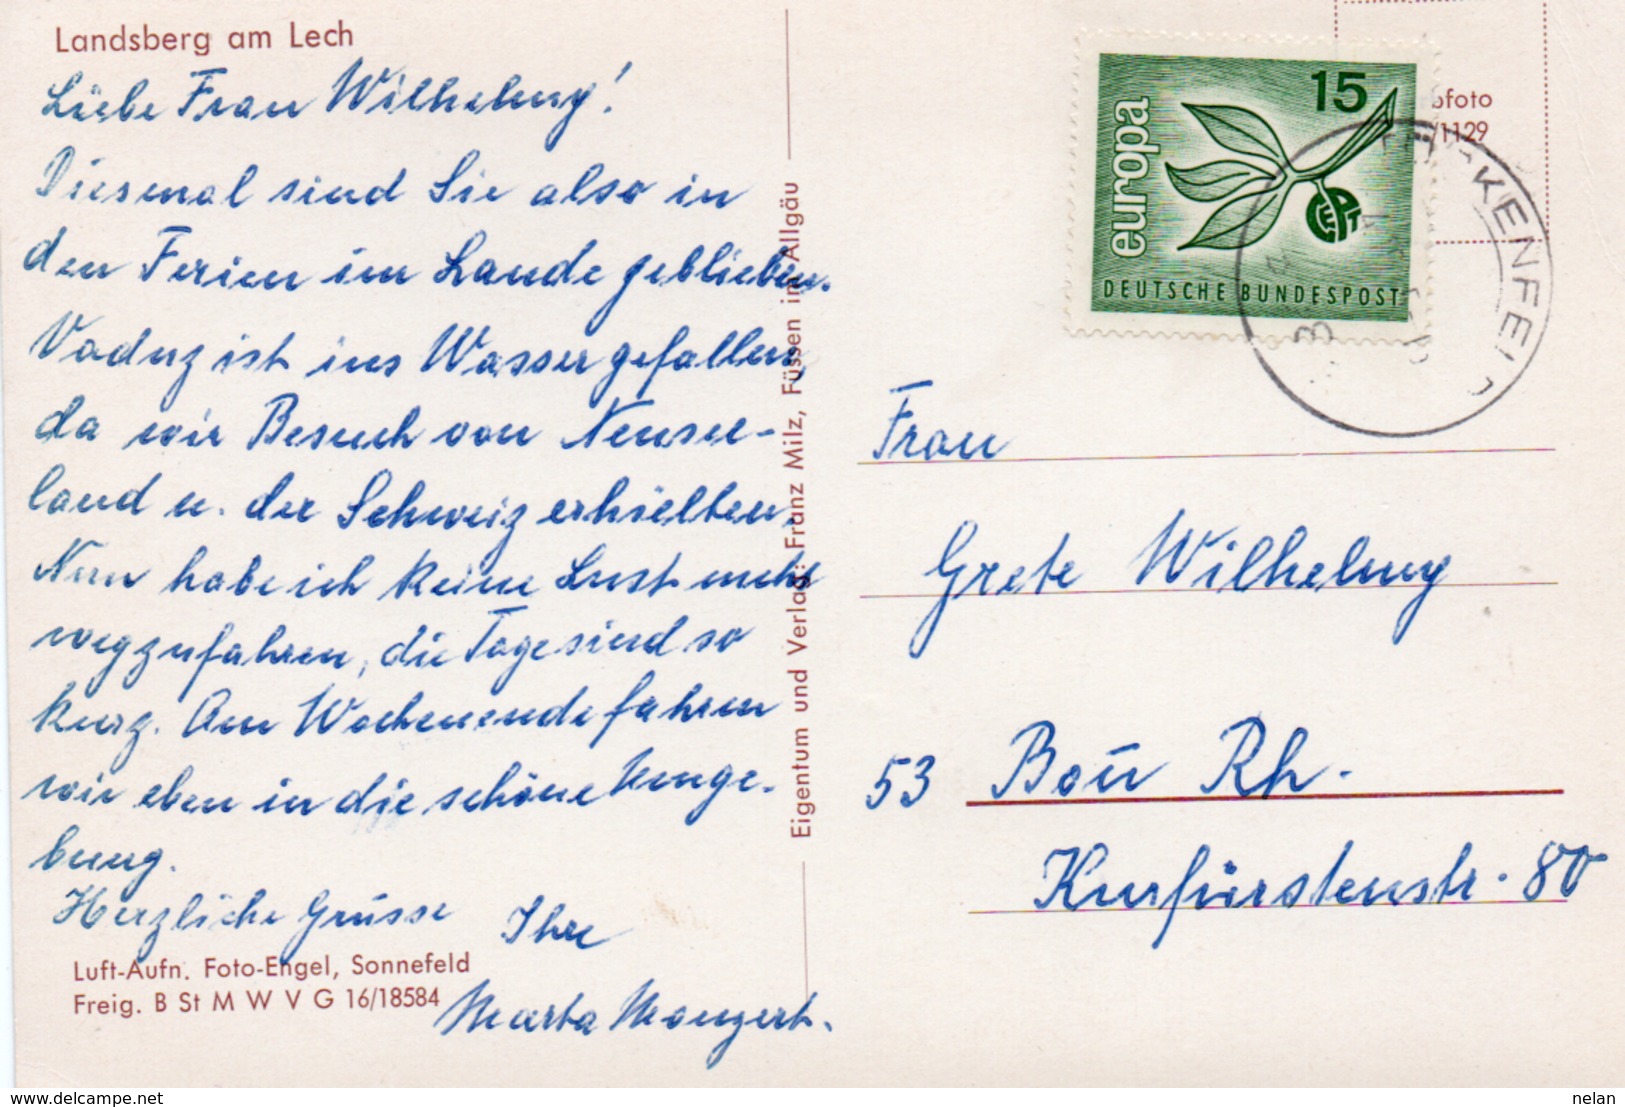 Landsberg am Lech
Liebe Frau Wilhelmy!
Diesmal sind Sie also in
den Ferien im Lande geblieben.
Vaduz ist ins Wasser gefallen,
da wir Besuch von Neusee-
land u. der Schweiz erhielten.
Nun habe ich keine Lust mehr
wegzufahren, die Tage sind so
kurz. Am Wochenende fahren
wir eben in die schöne Umge-
bung.
Herzliche Grüsse Ihre
Luft-Aufn. Foto-Engel, Sonnefeld
Freig. B St M W V G 16/18584
Marta
Eigentum und Verlag: Franz Milz, Füssen im Allgäu
15
europa
CEPT
DEUTSCHE BUNDESPOST
bfoto
/1129
KENFE
Frau
Grete Wilhelmy
53 Bonn Rh.
Kurfürstenstr. 80
delcampe.net
nelan